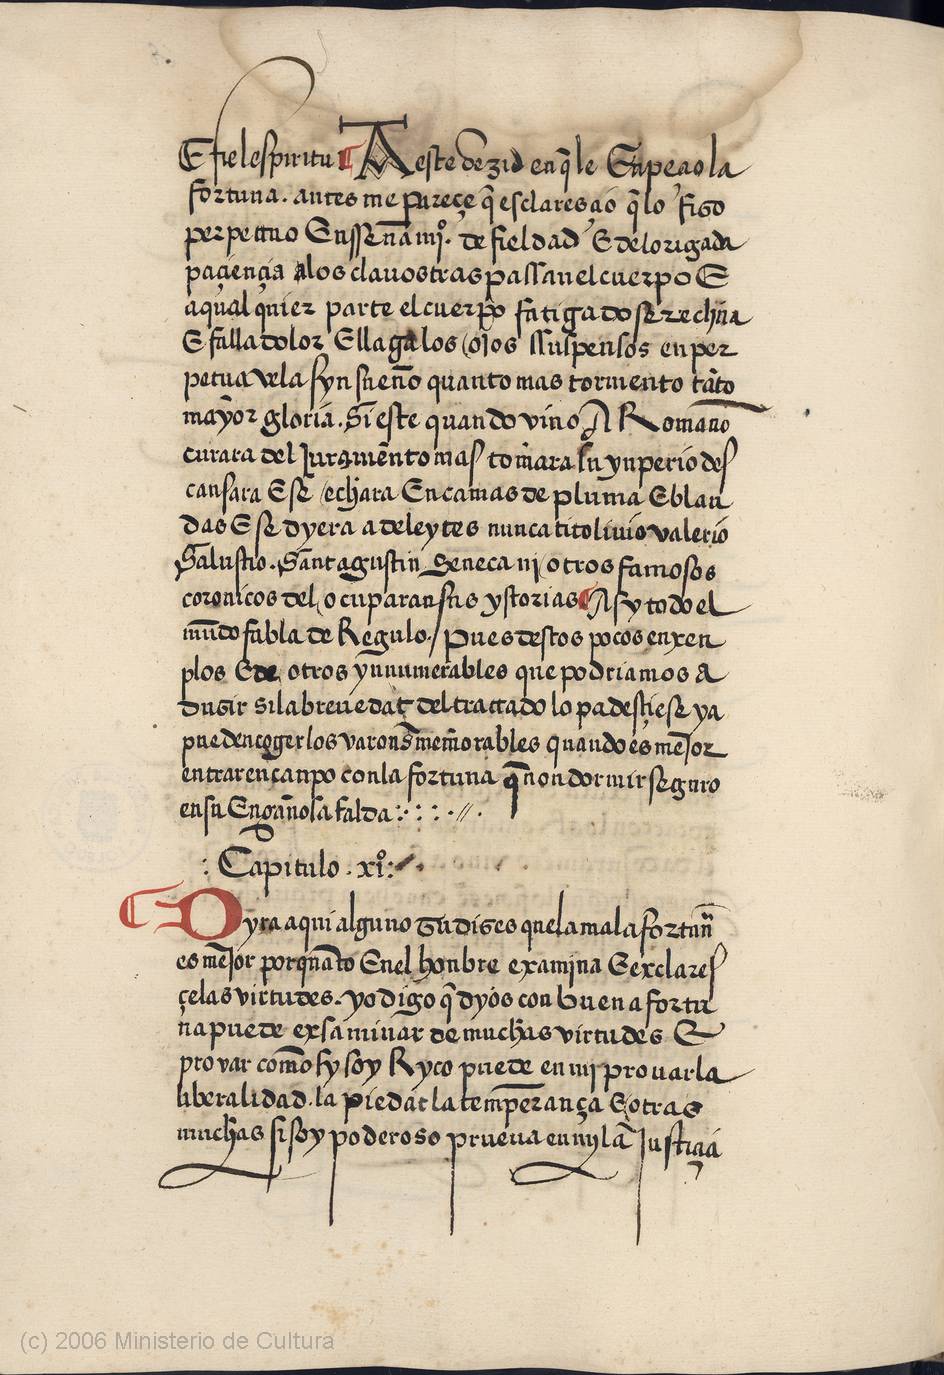 E fiel espiritu ¶ A este dezid en q̃ le Enpeçio la
fortuna. antes me pareçe q̃ esclaresçio q̃ lo fiso
perpetuo Ensseñamiº. de fieldad E de lo rigada
paçiençia alos clauos traspassan el cuerpo E
a qual quier parte el cuerpo fatigado se rechĩa
E falla dolor E llaga los ojos ssuspensos en per
petua vela syn sueño quanto mas tormento tãto
mayor gloria. Si este quando vino A Romano
curara del Iuramento mas tomara su ynperio des
cansara E se echara En camas de pluma E blan
das E se dyera a deleytes nunca titoliuio valerio
Salustio. Santagustin Seneca ni otros famosos
coronicos del ocuparan sus ystorias ¶ Asy todo el
mũdo fabla de Regulo./ pues destos pocos enxen
plos E de otros ynnumerables que podriamos A
dusir si la breuedat del tractado lo padesçiese ya
pueden coger los varones memorables quando es mejor
entrar en canpo con la fortuna q̃ non dormir seguro
en su Engañosa falda
: Capitulo . xiº:
¶ Oyra aqui alguno Tu dises que la mala fortuna
es mejor por quãto En el honbre examina E exclares
çe las virtudes. yo digo q̃ dyos con buena fortu
na puede exsaminar de muchas virtudes E
provar como sy soy Ryco puede en mi prouar la
liberalidad. la piedat la temperança E otras
muchas si soy poderoso prueua en my la Justiçia
(c) 2006 Ministerio de Cultura